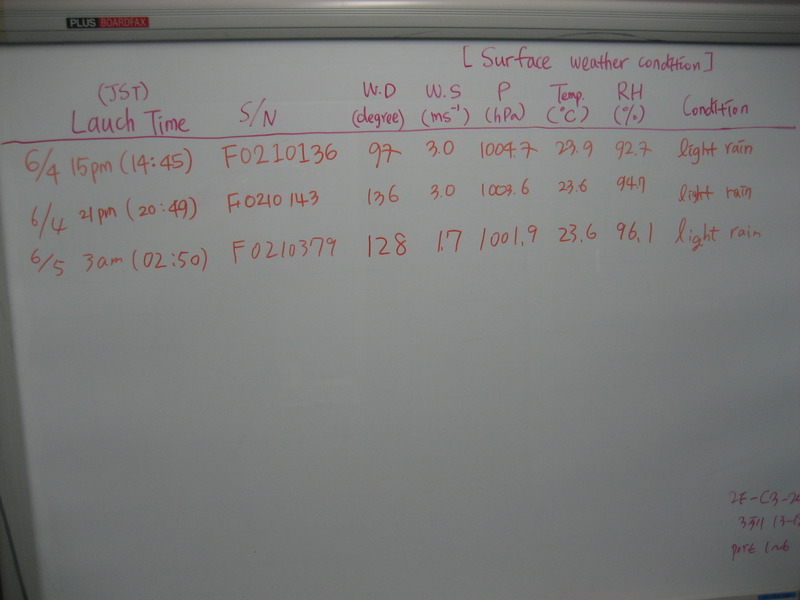 PLUS BOARDFAX
[ Surface weather condition ]
(JST) W.D W.S P Temp. RH
Lauch Time S/N (degree) (ms⁻¹) (hPa) (°C) (%) Condition
6/4 15pm (14:45) F0210136 97 3.0 1004.7 23.9 92.7 light rain
6/4 21pm (20:49) F0210143 136 3.0 1003.6 23.6 94.7 light rain
6/5 3am (02:50) F0210379 128 1.7 1001.9 23.6 96.1 light rain
2F-C3-
port